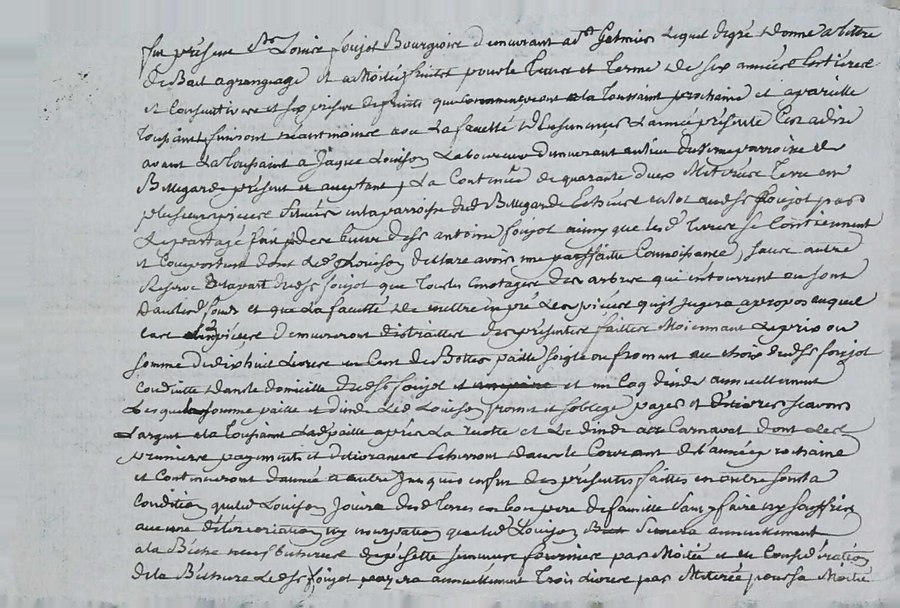 fut présent Sr Louis foujot Bourgeois demeurant a St Gelmier Lequel degré a donné a titre
De Bail a grangeage et a Moitié fruits pour le Temps et Terme De six années Entières
et Consecutives et six prises de fruits qui Commenceront a la Toussaint prochaine et a pareille
Toussaint finiront neantmoins avec La faculté D'Ensemencer L'année présente C'est adire
avant La Toussaint a Jaque Louison Laboureur demeurant au lieu parroisse de
Bellegarde présent et aceptant, La Contenue de quarante deux Meterées Terre en
plusieurs pieces situées en la parroisse dud Bellegarde Echües au lot dud Sr foujot par
Le partage fait des biens de Sr antoine foujot ainsy que lesd Terres se Contiennent
et Comportent dont Led Louison Declare avoir une parfaitte Connoissance, sans autre
Reserve De la part dud Sr foujot que Tous les Emotages des arbres qui entourrent ou sont
Dans lesd fonds et que La faculté De mettre en pré Les pieces qu'il jugera a propos auquel
cas pieces Demeureront distraittes des présentes faittes Moiennant Le prix ou
somme de dix huit Livres un Cent de Bottes paille soigle ou froment au choix dud Sr foujot
Conduitte dans le domicille dud Sr foujot et et un Coq dinde annuellement
Lesquels somme paille et dinde Led Louison promet et s'oblige payer et scavoir
L'argent a la Toussaint La d paille après La recolte et Le dinde au Carnaval Dont Les
premiers payements et Echerront dans le Courant de L'année prochaine
et Continueront d'année a autre Jusques a fin des présentes faittes en outre sous la
Condition que led Louison Jouira desd Terres en bon pere de famille sans y faire ny souffrir
aucune déterioration ny usurpation que led Louison Semera annuellement
a la Bêche Bicherées de Semence fournies par Moitié et en Consideration
de la Béchure Led Sr foujot payera annuellement Trois Livres par Meterée pour sa Moitié